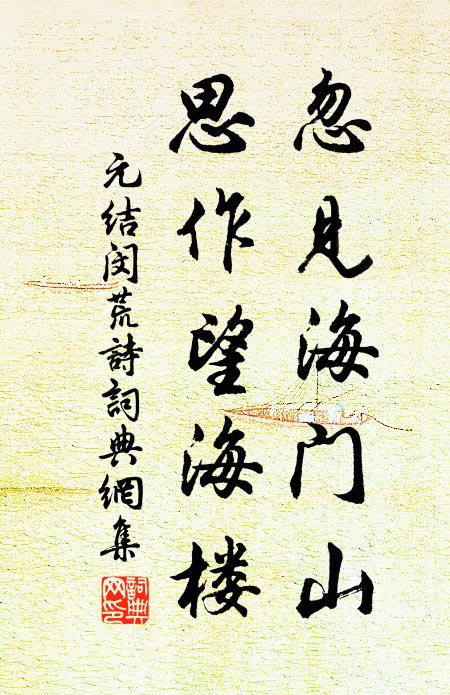 忽见海门山
思作望海楼
元结闵荒詩詞典網集
詞典网印